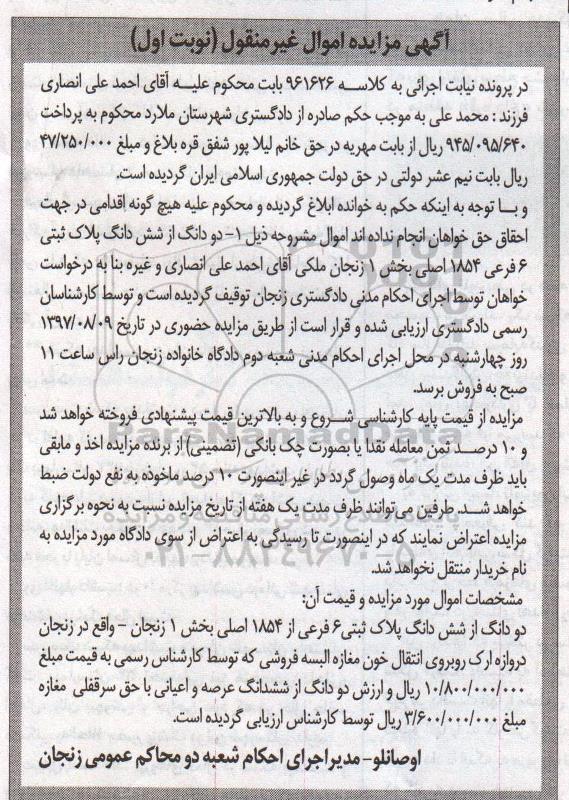 آگهی مزایده اموال غیرمنقول (نوبت اول)
در پرونده نیابت اجرائی به کلاسه ۹۶۱۶۲۶ بابت محکوم علیه آقای احمد علی انصاری
فرزند : محمد علی به موجب حکم صادره از دادگستری شهرستان ملارد محکوم به پرداخت
۹۴۵/۰۹۵/۶۴۰ ریال از بابت مهریه در حق خانم لیلا پور شفق قره بلاغ و مبلغ ۴۷/۲۵۰/۰۰۰
ریال بابت نیم عشر دولتی در حق دولت جمهوری اسلامی ایران گردیده است.
و با توجه به اینکه حکم به خوانده ابلاغ گردیده و محکوم علیه هیچ گونه اقدامی در جهت
احقاق حق خواهان انجام نداده اند اموال مشروحه ذیل ۱- دو دانگ از شش دانگ پلاک ثبتی
۶ فرعی ۱۸۵۴ اصلی بخش ۱ زنجان ملکی آقای احمد علی انصاری و غیره بنا به درخواست
خواهان توسط اجرای احکام مدنی دادگستری زنجان توقیف گردیده است و توسط کارشناسان
رسمی دادگستری ارزیابی شده و قرار است از طریق مزایده حضوری در تاریخ ۱۳۹۷/۰۸/۰۹
روز چهارشنبه در محل اجرای احکام مدنی شعبه دوم دادگاه خانواده زنجان راس ساعت ۱۱
صبح به فروش برسد.
مزایده از قیمت پایه کارشناسی شروع و به بالاترین قیمت پیشنهادی فروخته خواهد شد
و ۱۰ درصد ثمن معامله نقدا یا بصورت چک بانکی (تضمینی) از برنده مزایده اخذ و مابقی
باید ظرف مدت یک ماه وصول گردد در غیر اینصورت ۱۰ درصد ماخوذه به نفع دولت ضبط
خواهد شد. طرفین می توانند ظرف مدت یک هفته از تاریخ مزایده نسبت به نحوه برگزاری
مزایده اعتراض نمایند که در اینصورت تا رسیدگی به اعتراض از سوی دادگاه مورد مزایده به
نام خریدار منتقل نخواهد شد.
مشخصات اموال مورد مزایده و قیمت آن:
دو دانگ از شش دانگ پلاک ثبتی ۶ فرعی از ۱۸۵۴ اصلی بخش ۱ زنجان - واقع در زنجان
دروازه ارک روبروی انتقال خون مغازه البسه فروشی که توسط کارشناس رسمی به قیمت مبلغ
۱۰/۸۰۰/۰۰۰/۰۰۰ ریال و ارزش دو دانگ از ششدانگ عرصه و اعیانی با حق سرقفلی مغازه
مبلغ ۳/۶۰۰/۰۰۰/۰۰۰ ریال توسط کارشناس ارزیابی گردیده است.
اوصانلو- مدیر اجرای احکام شعبه دو محاکم عمومی زنجان
ParsNamadData
پایگاه اطلاع رسانی مناقصه و مزایده
۰۲۱-۸۸۳۴۹۶۷۰-۵